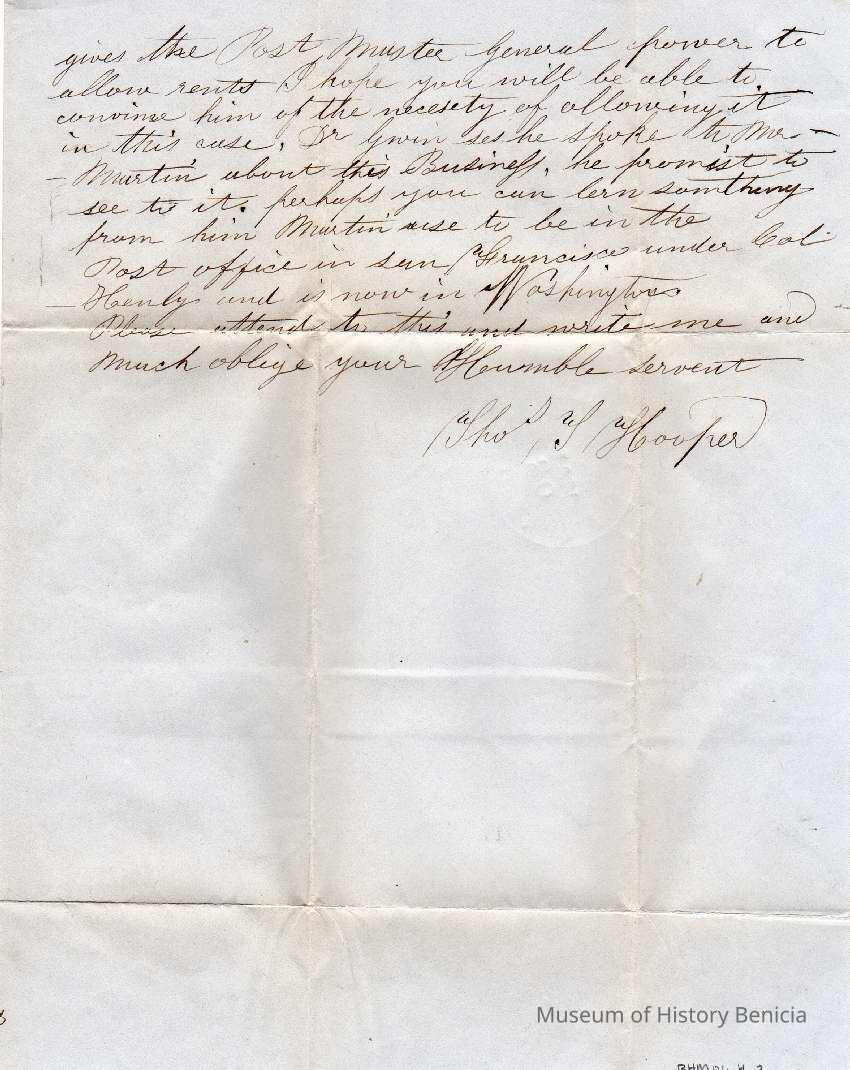 gives the Post Mustee General power to
allow rents I hope you will be able to
convince him of the necesety of allowing it
in this case, Dr Gwin ses he spoke to Mr
Martin about this Business, he promist to
see to it. perhaps you can lern somthing
from him Martin use to be in the
Post office in san Francisco under Col
Henly and is now in Washington
Please attend to this and write me and
much oblige your Humble servent
Thos, S Hooper
Museum of History Benicia